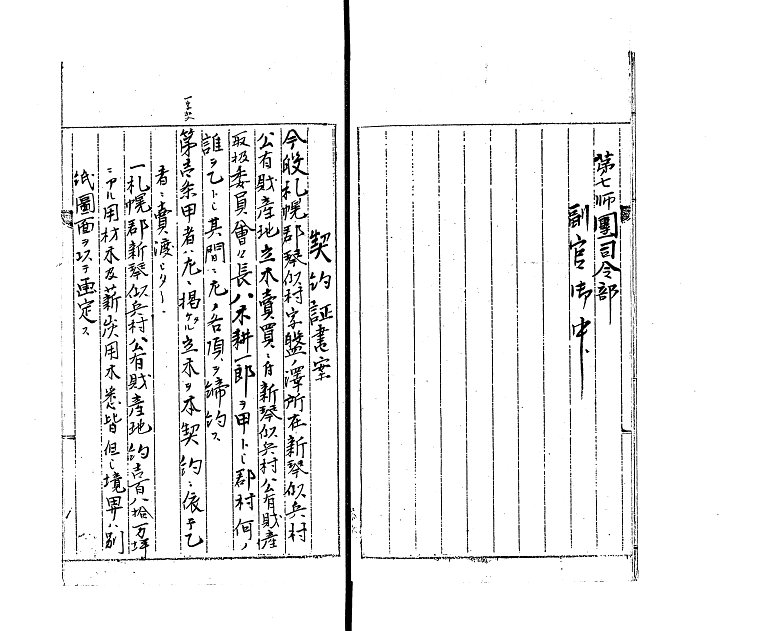 第七師團司令部
副官御中
契約証書案
今般札幌郡琴似村字盤ノ澤所在新琴似兵村
公有財産地立木賣買ニ付新琴似兵村公有財産
取扱委員會々長八木耕一郎ヲ甲トシ郡村何ノ
誰ヲ乙トシ其間ニ左ノ各項ヲ締約ス
第壱条甲者ハ左ニ掲クル立木ヲ本契約ニ依テ乙
者ニ賣渡シタリ
一札幌郡新琴似兵村公有財産地約壱百八拾万坪
ニアル用材木及薪炭用木悉皆但シ境界ハ別
紙圖面ヲ以テ画定ス